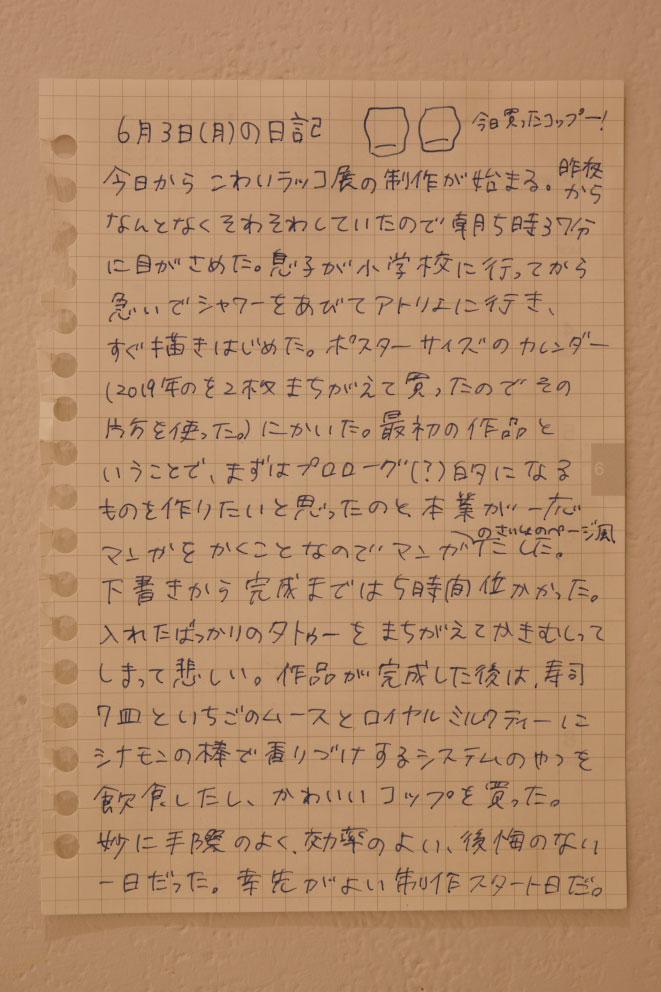 6月3日(月)の日記
今日買ったコップー!
今日から こわいラッコ展の制作が始まる。昨夜から
なんとなくそわそわしていたので朝5時37分
に目がさめた。息子が小学校に行ってから
急いでシャワーをあびてアトリエに行き、
すぐ描きはじめた。ポスターサイズのカレンダー
(2019年のを2枚まちがえて買ったのでその
片方を使った。)にかいた。最初の作品と
いうことで、まずはプロローグ(?)的になる
ものを作りたいと思ったのと、本業が一応
マンガをかくことなのでマンガのさいしょのページ風にした。
下書きから完成までは5時間位かかった。
入れたばっかりのタトゥーをまちがえてかきむしって
しまって悲しい。作品が完成した後は、寿司
7皿といちごのムースとロイヤルミルクティーに
シナモンの棒で香りづけするシステムのやつを
飲食したし、かわいいコップを買った。
妙に手際のよく、効率のよい、後悔のない
一日だった。幸先がよい制作スタート日だ。
6